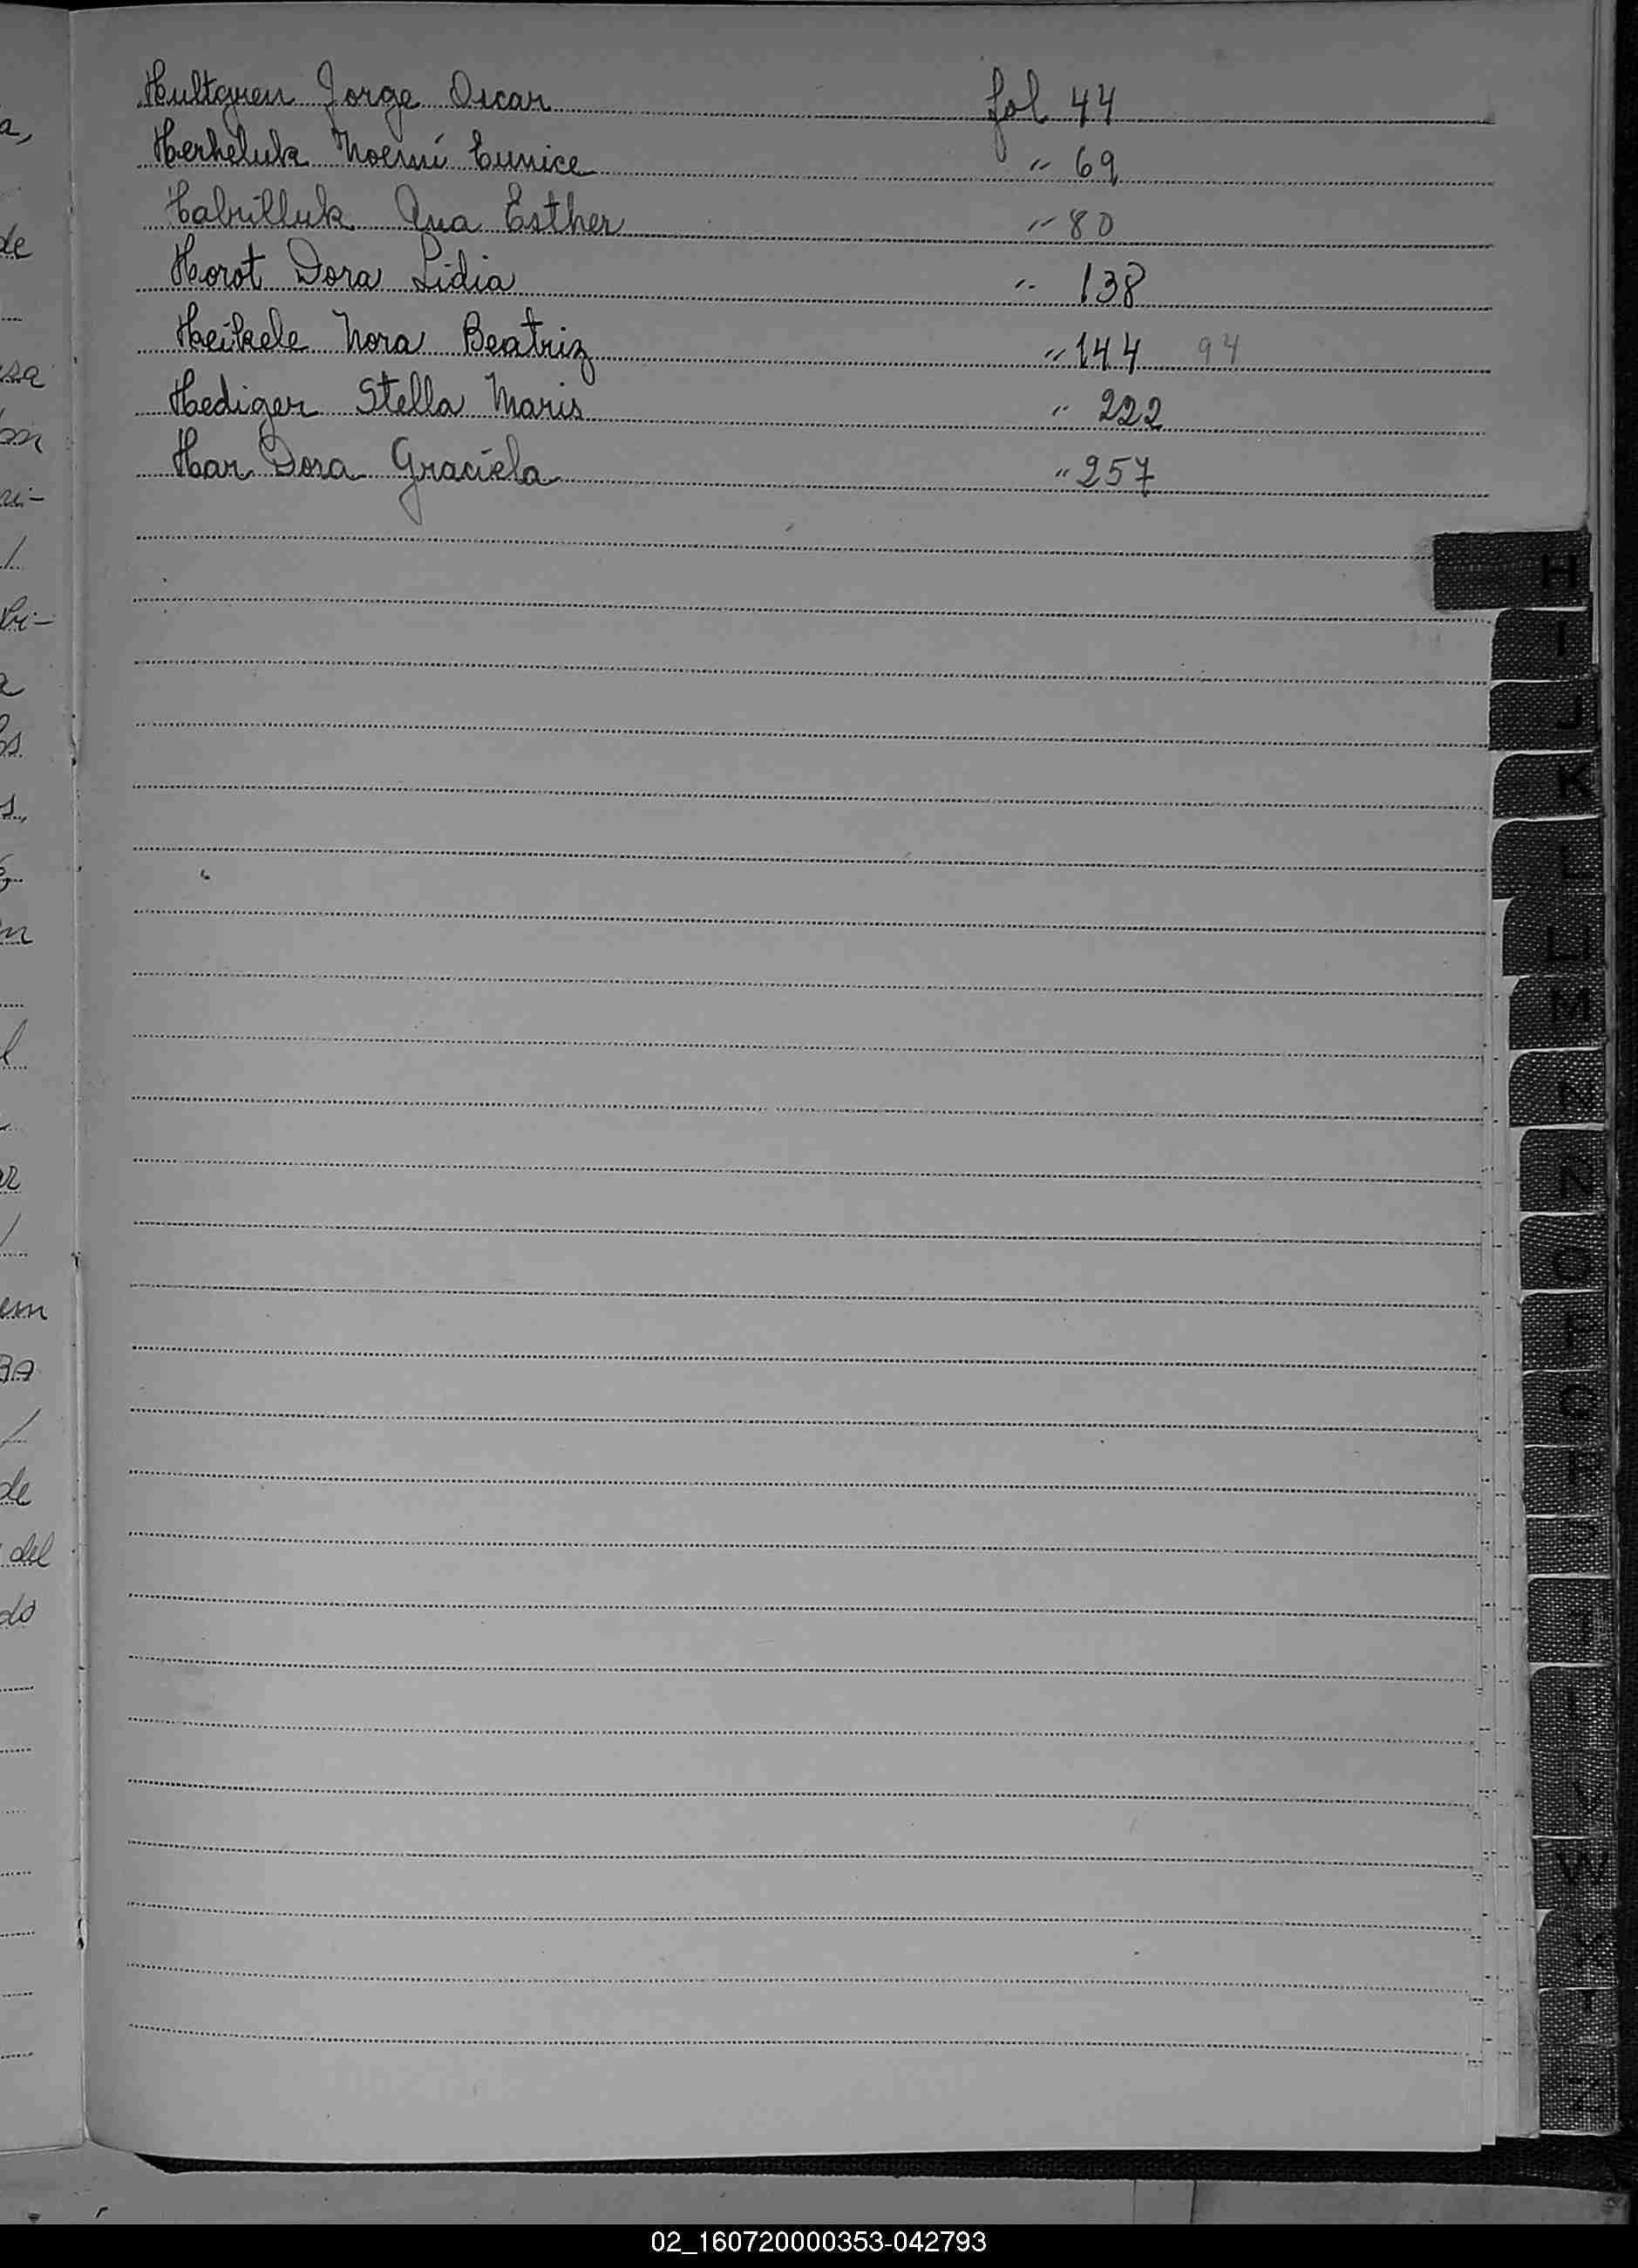 Hultgren Jorge Oscar fol 44
Herheluk Noemí Eunice " 69
Habrilluk Ana Esther " 80
Horot Dora Lidia " 138
Heikele Nora Beatriz " 144 94
Hediger Stella Maris " 222
Har Dora Graciela " 257
H
I
J
K
L
LL
M
N
Ñ
O
P
Q
R
S
T
V
W
X
Y
Z
a,
de
sa
ri-
bi-
a
s,
m
l
em
BA
de
del
do
02_160720000353-042793